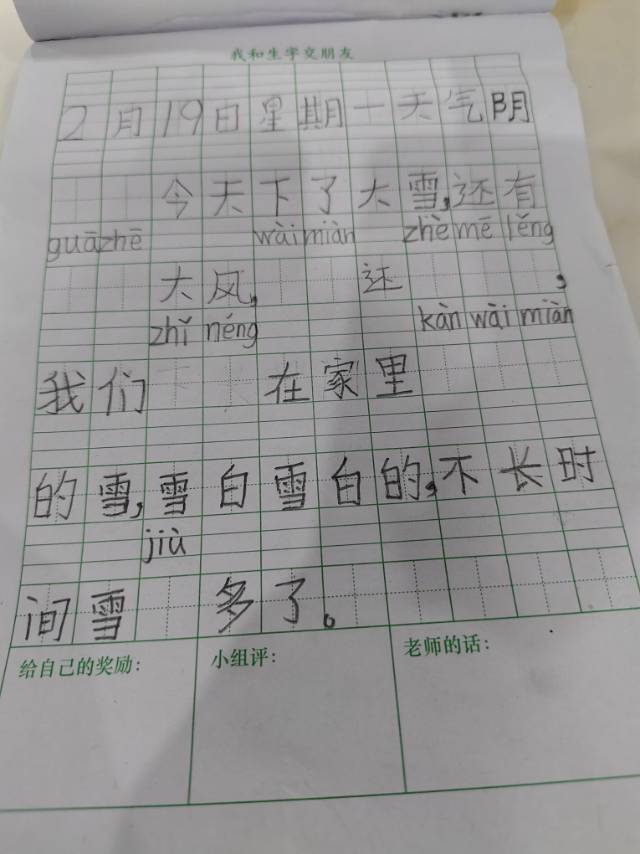 我和生字交朋友
2月19日星期一天气阴
今天下了大雪,还有
guāzhē wàimiàn zhèmē lěng
大风, 还 ,
zhǐ néng kàn wài miàn
我们 在家里
的雪,雪白雪白的,不长时
jiù
间雪 多了。
给自己的奖励: 小组评: 老师的话: